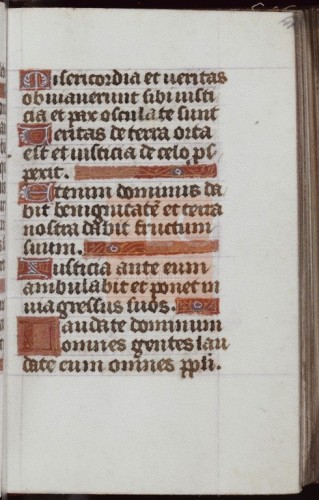 Misericordia et ueritas
obuiauerunt sibi iusti
cia et pax osculate sunt
Ueritas de terra orta
est et iusticia de celo ꝓs
pexit.
Etenim dominus da
bit benignitatē et terra
nostra dabit fructum
suum.
Iusticia ante eum
ambulabit et ponet in
uia gressus suos.
Laudate dominum
omnes gentes lau
date eum omnes ppli.